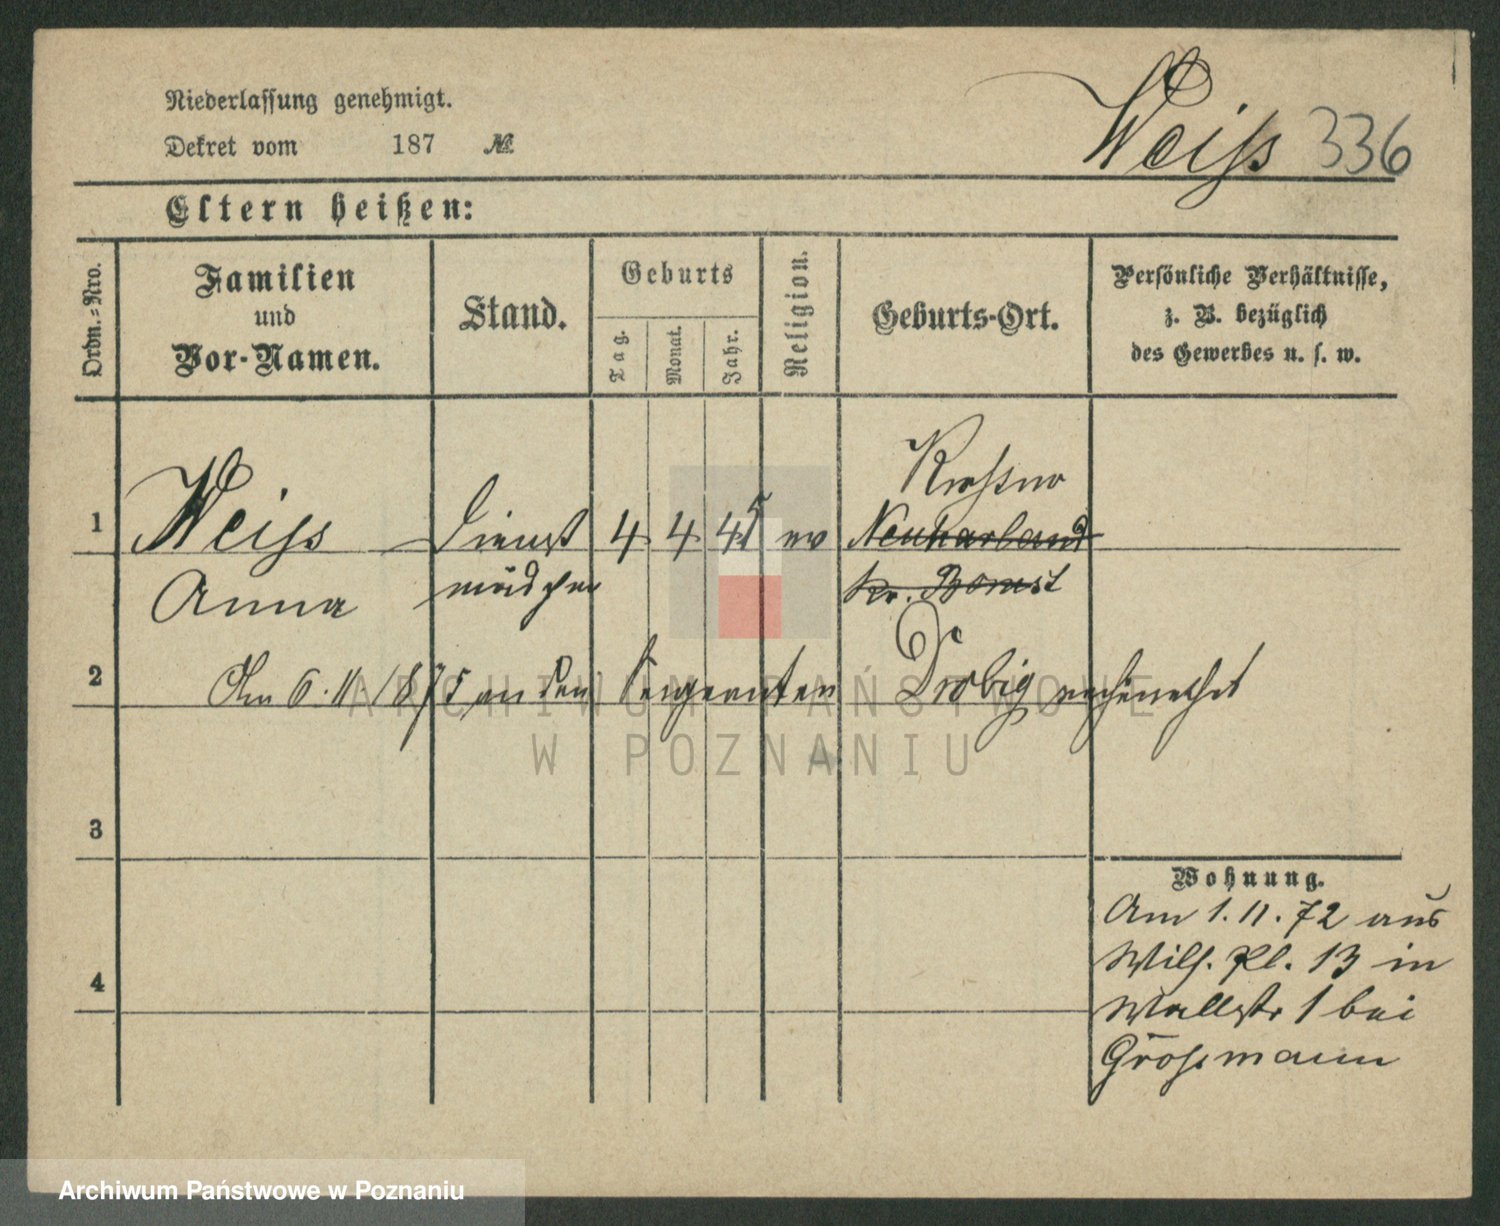 Niederlassung genehmigt.
Dekret vom 187 №
Weiss 336
Eltern heißen:
Ordn.-Nro.
Familien
und
Vor-Namen.
Stand.
Geburts
Tag.
Monat.
Jahr.
Religion.
Geburts-Ort.
Persönliche Verhältnisse,
z. B. bezüglich
des Gewerbes u. s. w.
Krossno
1 Weiss Dienst 4 4 45 ev Neukarland
Anna mädchen Kr. Bomst
2 Am 6.11.1875 an den Sergeanten Drobig verheirathet
3
Wohnung.
Am 1.11.72 aus
Wilh. Pl. 13 in
4
Wallstr 1 bei
Grossmann
ARCHIWUM PAŃSTWOWE
W POZNANIU
Archiwum Państwowe w Poznaniu